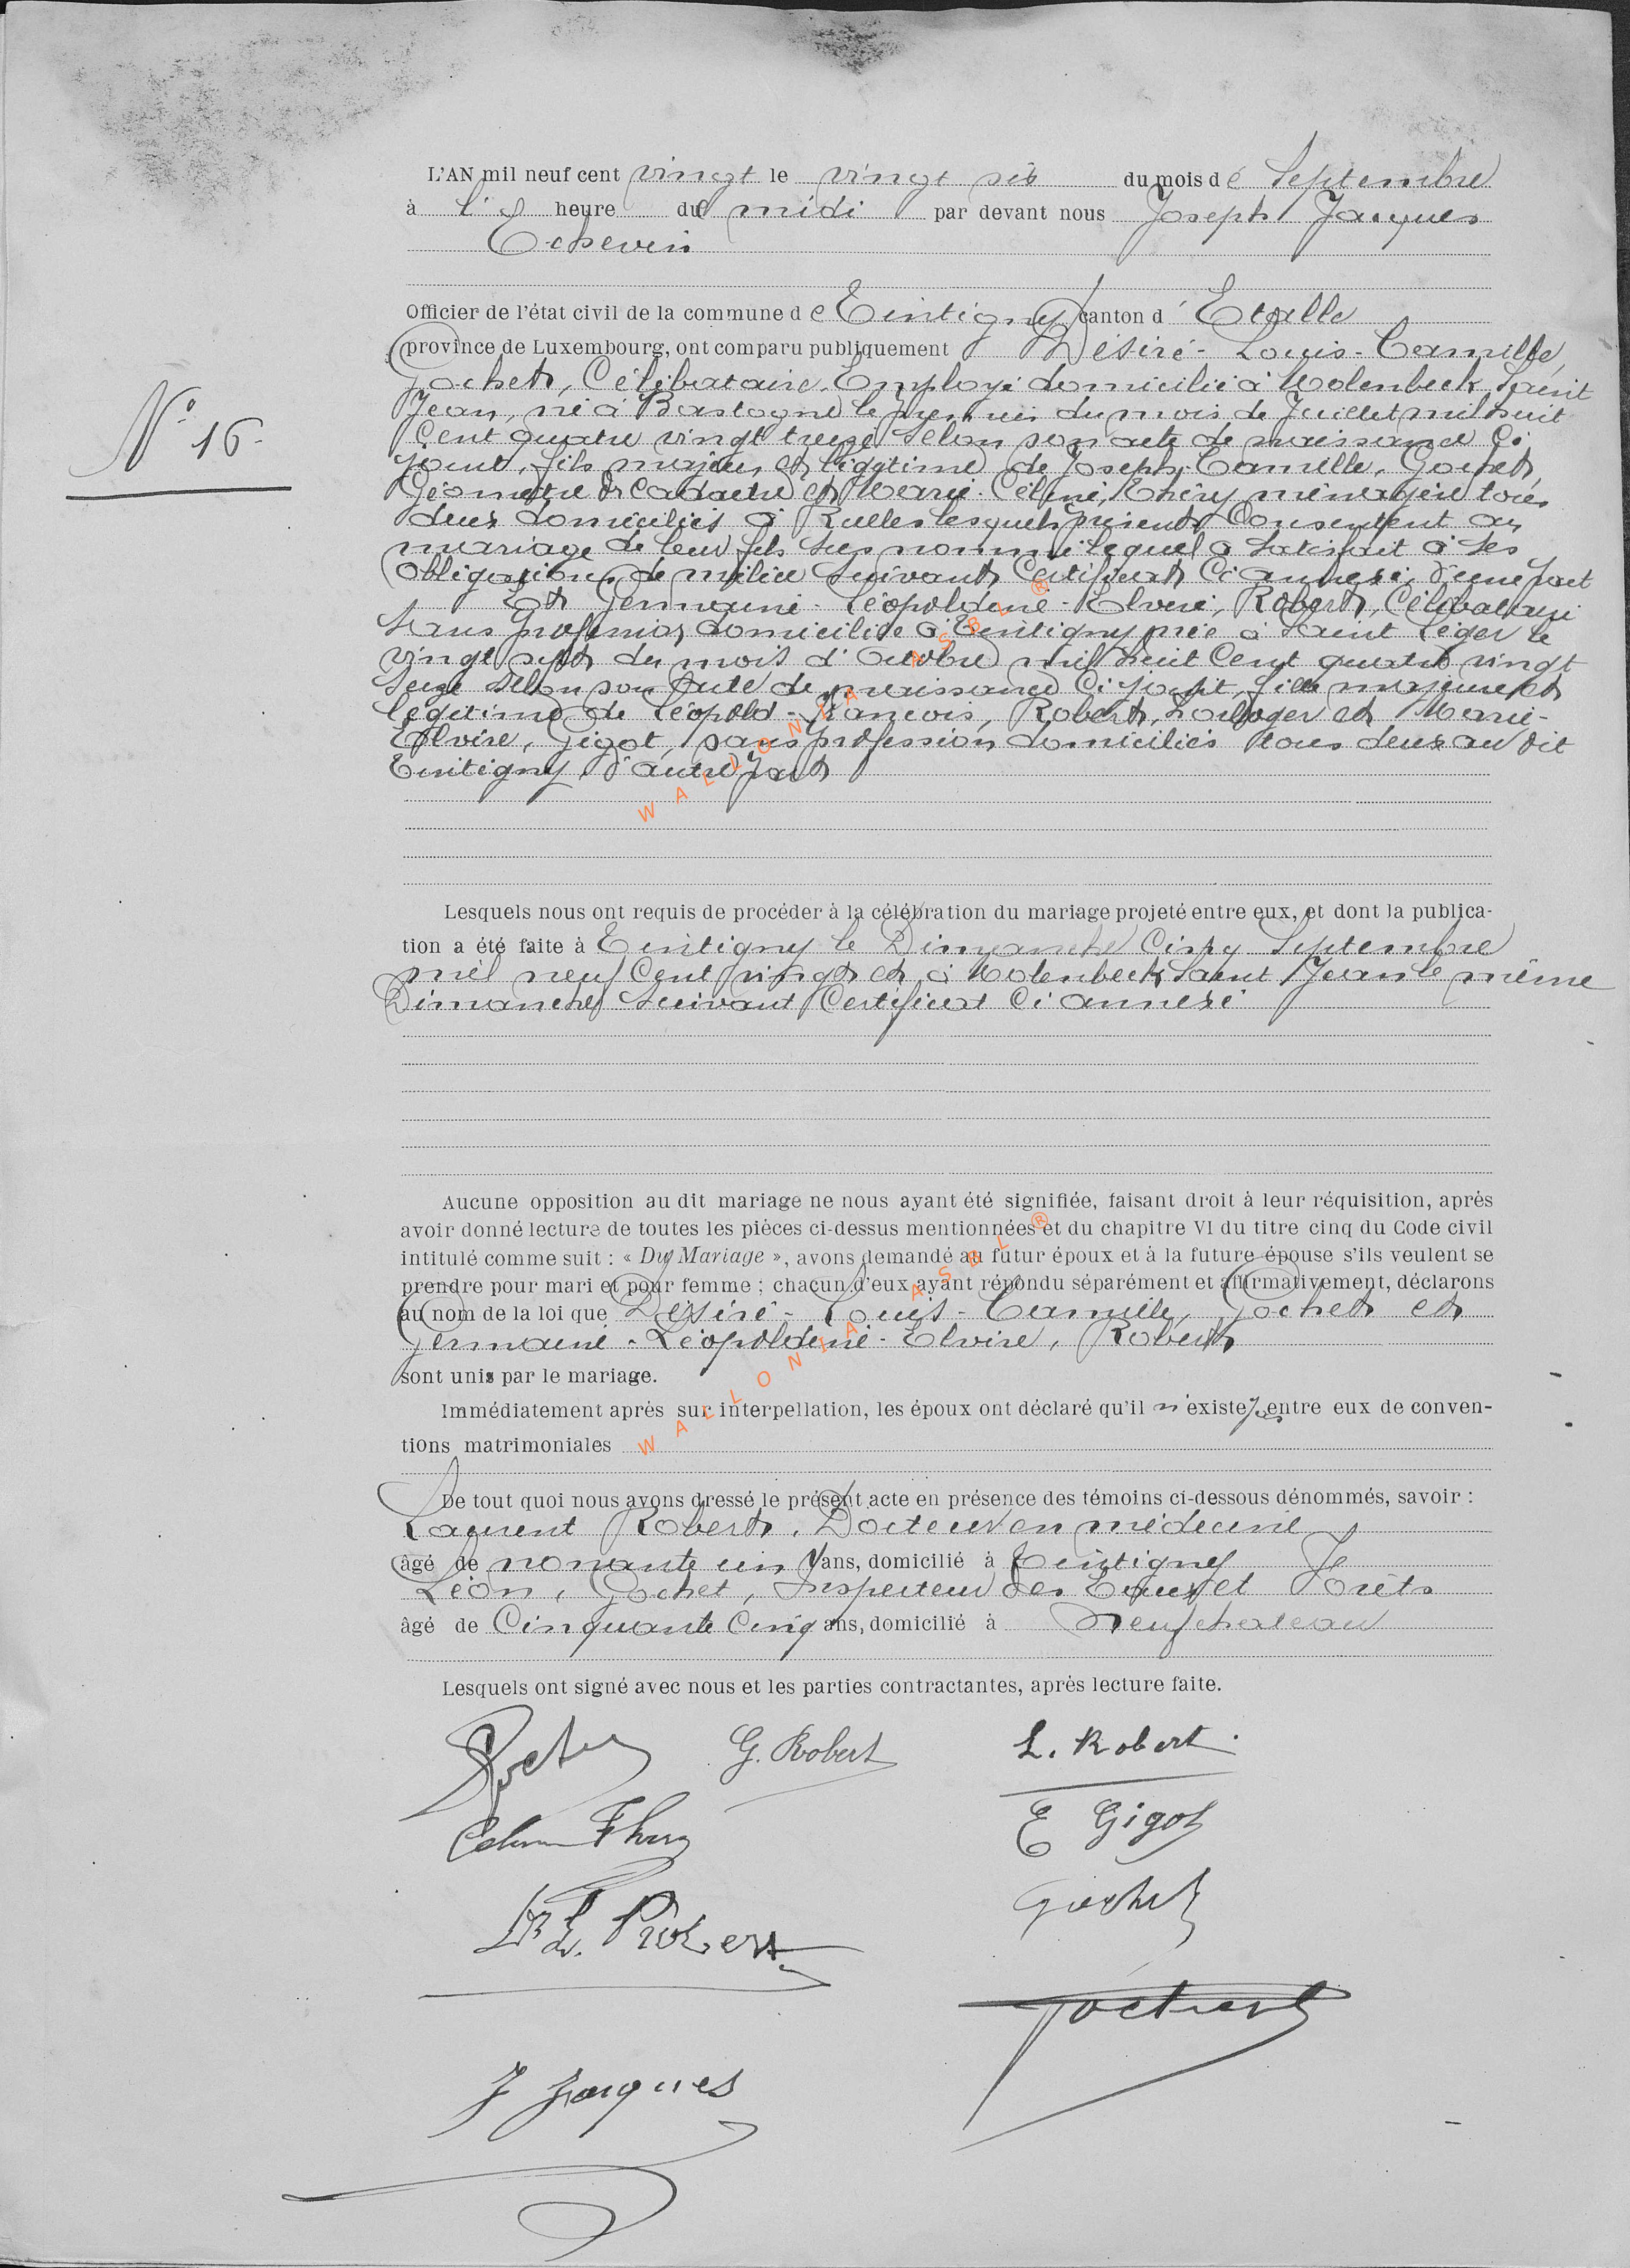 L'AN mil neuf cent vingt le vingt six du mois de Septembre
à l' heure du midi par devant nous Joseph Jacques
Echevin
Officier de l'état civil de la commune de Tintigny canton d'Etalle
province de Luxembourg, ont comparu publiquement Désiré-Louis-Camille,
Gochet, Célibataire, Employé domicilié à Molenbeek Saint
N° 16.
Jean, né à Bastogne le premier du mois de Juillet mil huit
Cent quatre vingt treize selon son acte de naissance Ci
joint, fils majeur et légitime de Joseph-Camille, Gochet,
Géomètre du Cadastre et Marie-Céline, Théry ménagère tous
deux domiciliés à Ruelles lesquels présents Consentent au
mariage de leur fils sus nommé lequel a satisfait à ses
obligations de milice suivant Certificat Ci annexé, d'une part
Et Germaine-Léopoldine-Elvire, Robert, Célibataire
sans profession domiciliée à Tintigny née à Saint Léger le
vingt sept du mois d'Octobre mil huit Cent quatre vingt
seize selon son Acte de naissance Ci joint, fille majeure et
légitime de Léopold-François, Robert, horloger et Marie-
Elvire, Gigot, sans profession domiciliés tous deux au dit
Tintigny, d'autre part
Lesquels nous ont requis de procéder à la célébration du mariage projeté entre eux, et dont la publica-
tion a été faite à Tintigny le Dimanche Cinq Septembre
mil neuf Cent vingt et à Molenbeek Saint Jean le même
Dimanche suivant Certificat Ci annexé
Aucune opposition au dit mariage ne nous ayant été signifiée, faisant droit à leur réquisition, après
avoir donné lecture de toutes les pièces ci-dessus mentionnées et du chapitre VI du titre cinq du Code civil
intitulé comme suit : « Du Mariage », avons demandé au futur époux et à la future épouse s'ils veulent se
prendre pour mari et pour femme ; chacun d'eux ayant répondu séparément et affirmativement, déclarons
au nom de la loi que Désiré-Louis-Camille, Gochet et
Germaine-Léopoldine-Elvire, Robert
sont unis par le mariage.
Immédiatement après sur interpellation, les époux ont déclaré qu'il n'existe pas entre eux de conven-
tions matrimoniales
De tout quoi nous avons dressé le présent acte en présence des témoins ci-dessous dénommés, savoir :
Laurent Robert, Docteur en médecine
âgé de nonante un ans, domicilié à Tintigny
Léon, Gochet, Inspecteur des Eaux et Forêts
âgé de Cinquante Cinq ans, domicilié à Neufchateau
Lesquels ont signé avec nous et les parties contractantes, après lecture faite.
G. Robert L. Robert.
E Gigot
Gochet
Dr L. Robert
Gochet
J Jacques
WALLONIA ASBL ®
WALLONIA ASBL ®